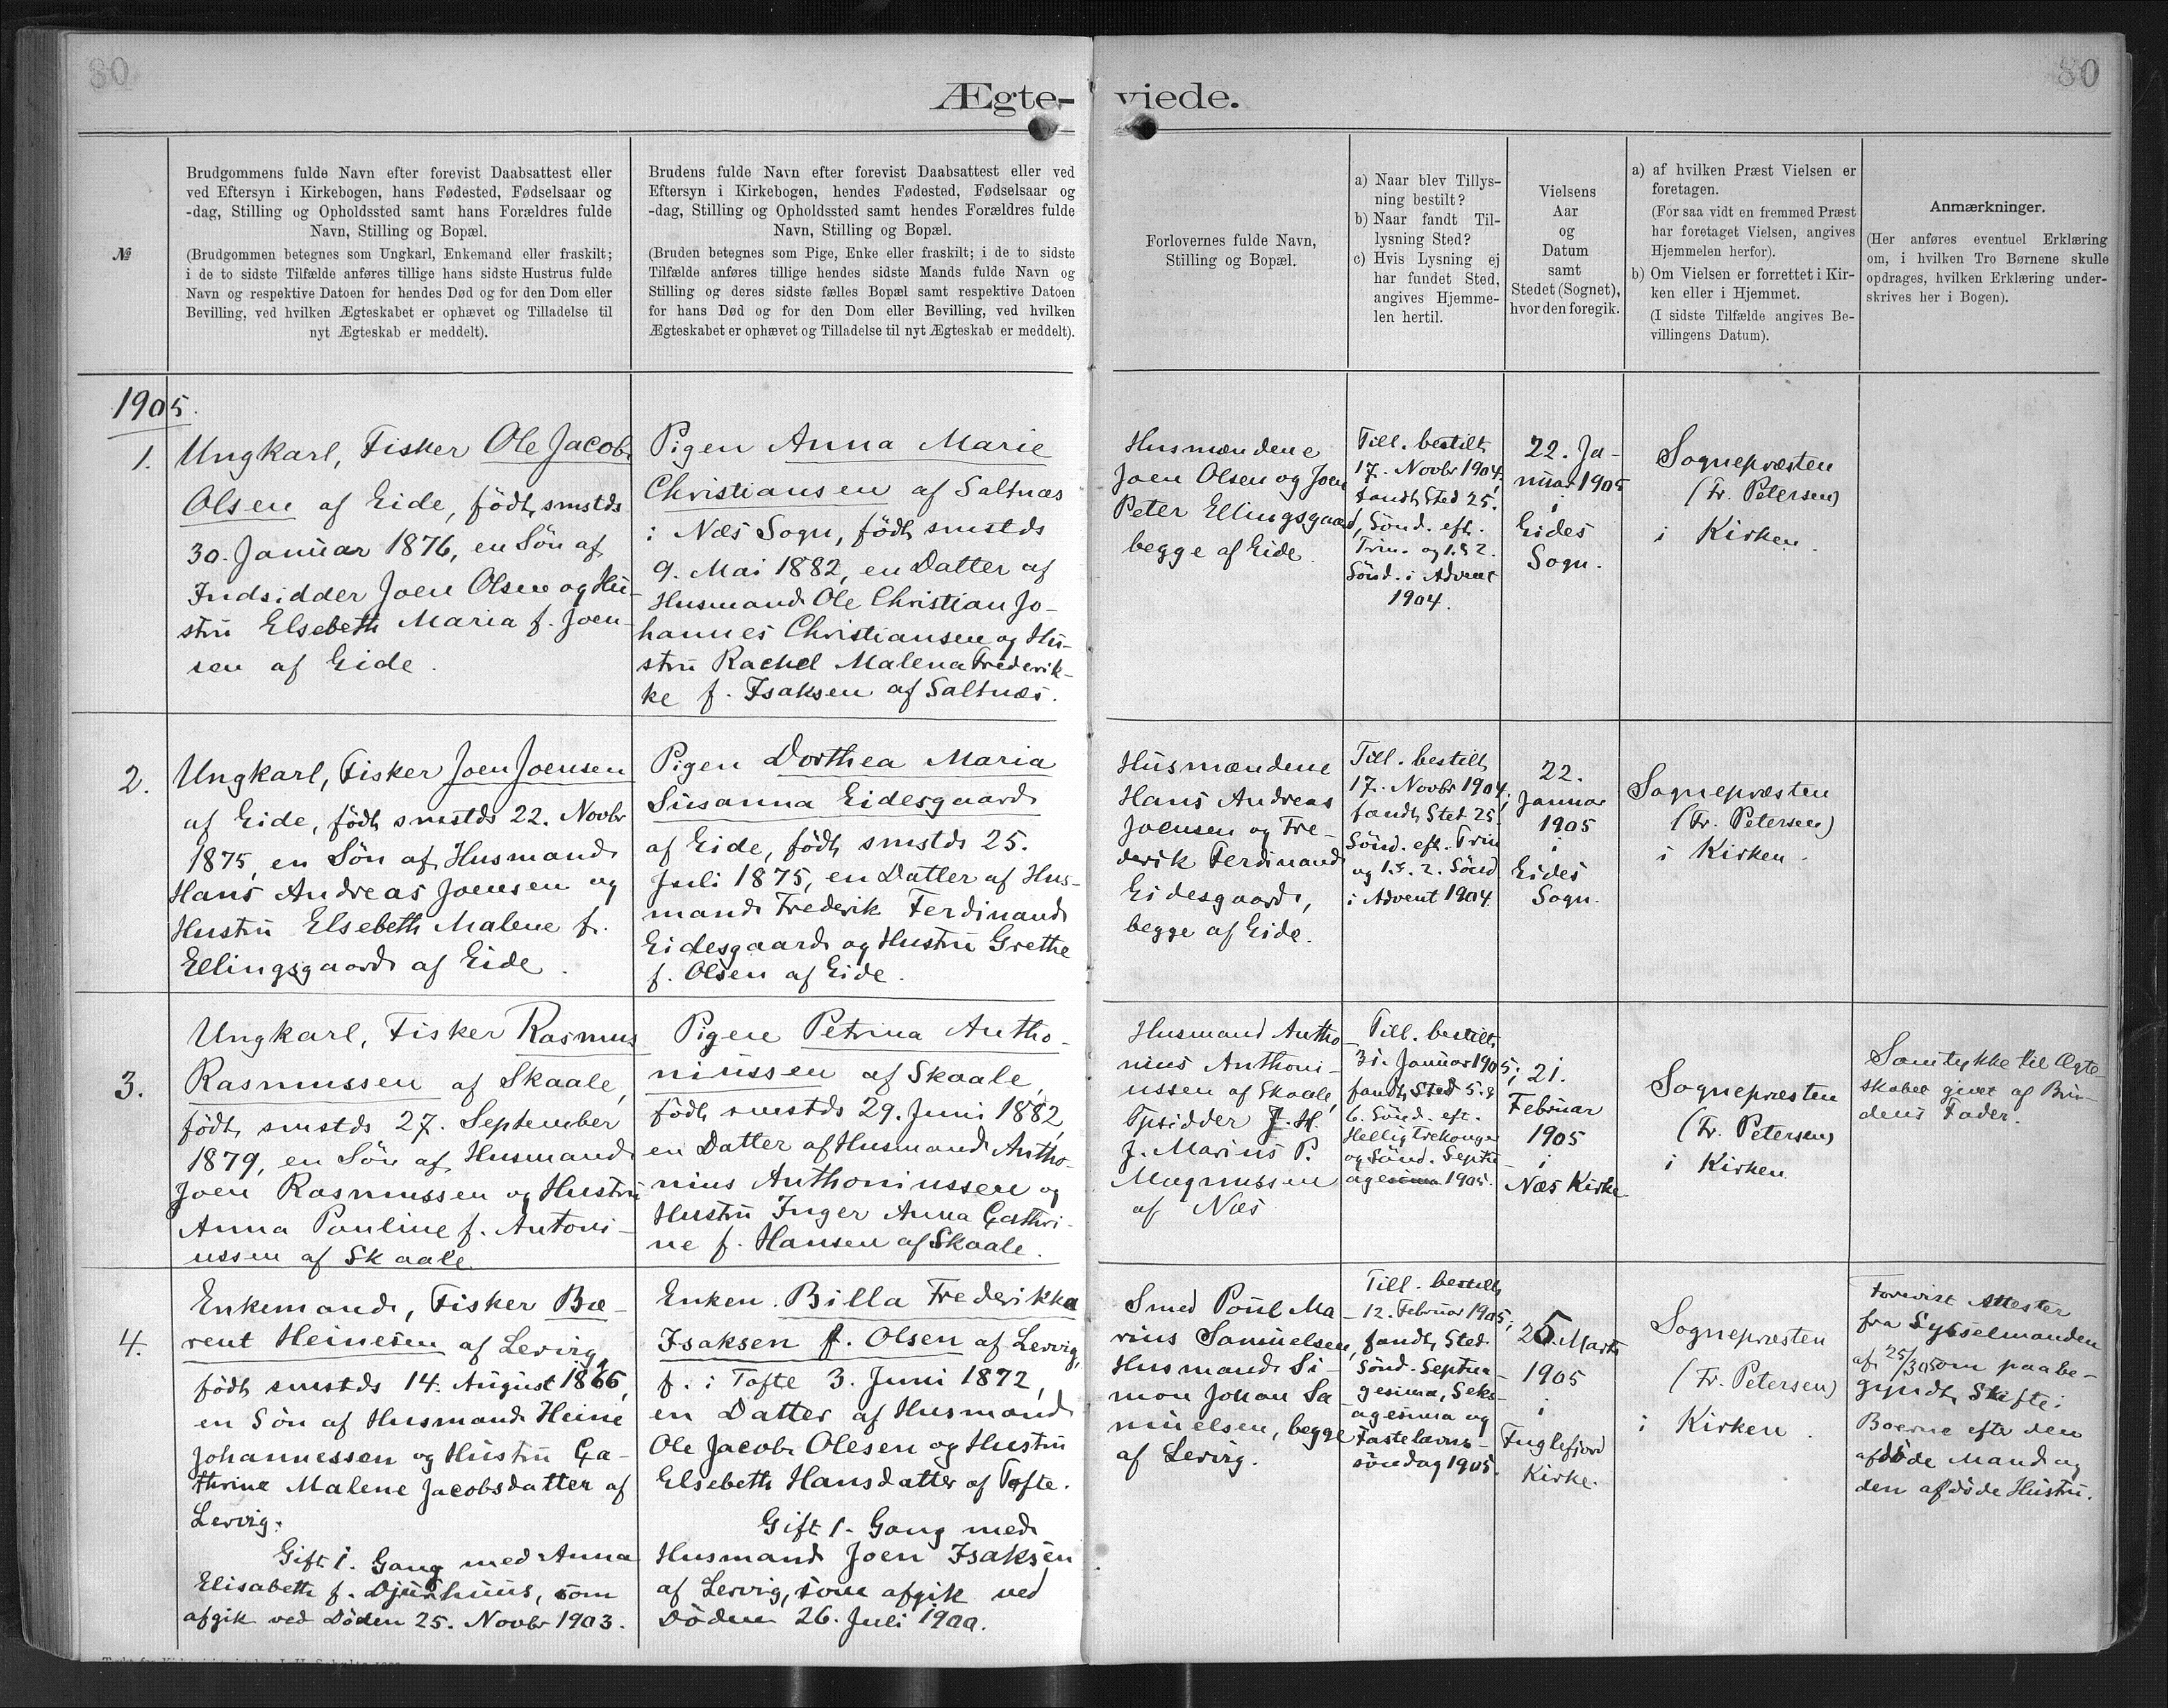 80
80
Ægte-
viede.
№
Brudgommens fulde Navn efter forevist Daabsattest eller
ved Eftersyn i Kirkebogen, hans Fødested, Fødselsaar og
-dag, Stilling og Opholdssted samt hans Forældres fulde
Navn, Stilling og Bopæl.
(Brudgommen betegnes som Ungkarl, Enkemand eller fraskilt;
i de to sidste Tilfælde anføres tillige hans sidste Hustrus fulde
Navn og respektive Datoen for hendes Død og for den Dom eller
Bevilling, ved hvilken Ægteskabet er ophævet og Tilladelse til
nyt Ægteskab er meddelt).
Brudens fulde Navn efter forevist Daabsattest eller ved
Eftersyn i Kirkebogen, hendes Fødested, Fødselsaar og
-dag, Stilling og Opholdssted samt hendes Forældres fulde
Navn, Stilling og Bopæl.
(Bruden betegnes som Pige, Enke eller fraskilt; i de to sidste
Tilfælde anføres tillige hendes sidste Mands fulde Navn og
Stilling og deres sidste fælles Bopæl samt respektive Datoen
for hans Død og for den Dom eller Bevilling, ved hvilken
Ægteskabet er ophævet og Tilladelse til nyt Ægteskab er meddelt).
Forlovernes fulde Navn,
Stilling og Bopæl.
a) Naar blev Tillys-
ning bestilt?
b) Naar fandt Til-
lysning Sted?
c) Hvis Lysning ej
har fundet Sted,
angives Hjemme-
len hertil.
Vielsens
Aar
og
Datum
samt
Stedet (Sognet),
hvor den foregik.
a) af hvilken Præst Vielsen er
foretagen.
(For saa vidt en fremmed Præst
har foretaget Vielsen, angives
Hjemmelen herfor).
b) Om Vielsen er forrettet i Kir-
ken eller i Hjemmet.
(I sidste Tilfælde angives Be-
villingens Datum).
Anmærkninger.
(Her anføres eventuel Erklæring
om, i hvilken Tro Børnene skulle
opdrages, hvilken Erklæring under-
skrives her i Bogen).
1905.
1.
Ungkarl, Fisker Ole Jacob
Olsen af Eide, födt smstds
30. Januar 1876, en Sön af
Indsidder Joen Olsen og Hu-
stru Elsebeth Maria f. Joen-
sen af Eide.
Pigen Anna Marie
Christiansen af Saltnæs
i Næs Sogn, födt smstds
9. Mai 1882, en Datter af
Husmand Ole Christian Jo-
hannes Christiansen og Hu-
stru Rachel Malena Frederik-
ke f. Isaksen af Saltnæs.
Husmændene
Joen Olsen og Joen
Peter Ellingsgaard,
begge af Eide.
Till. bestilt
17. Novbr 1904,
fandt Sted 25.
Sönd. eft.
Trin. og 1. & 2.
Sönd. i Advent
1904.
22. Ja-
nuar 1905
i
Eides
Sogn.
Sognepræsten
(Fr. Petersen)
i Kirken.
2.
Ungkarl, Fisker Joen Joensen
af Eide, födt smstds 22. Novbr
1875, en Sön af Husmand
Hans Andreas Joensen og
Hustru Elsebeth Malene f.
Ellingsgaard af Eide.
Pigen Dorthea Maria
Susanna Eidesgaard
af Eide, födt smstds 25.
Juli 1875, en Datter af Hus-
mand Frederik Ferdinand
Eidesgaard og Hustru Grethe
f. Olsen af Eide.
Husmændene
Hans Andreas
Joensen og Fre-
derik Ferdinand
Eidesgaard,
begge af Eide.
Till. bestilt
17. Novbr 1904;
fandt Sted 25.
Sönd. eft. Trin
og 1. & 2. Sönd
i Advent 1904.
22.
Januar
1905
i
Eides
Sogn.
Sognepræsten
(Fr. Petersen)
i Kirken.
3.
Ungkarl, Fisker Rasmus
Rasmussen af Skaale,
födt smstds 27. September
1879, en Sön af Husmand
Joen Rasmussen og Hustru
Anna Pauline f. Antoni-
ussen af Skaale
Pigen Petrina Antho-
niussen af Skaale,
födt smstds 29. Juni 1882,
en Datter af Husmand Antho-
nius Anthoniussen og
Hustru Inger Anna Cathri-
ne f. Hansen af Skaale.
Husmand Antho-
nius Anthoni-
ussen af Skaale,
Opsidder J. H.
J. Marius P.
Magnussen
af Næs
Till. bestilt
31. Januar 1905;
fandt Sted 5. &
6. Sönd. eft.
Hellig Trekonger
og Sönd. Septu-
agesima 1905.
21.
Februar
1905
i
Næs Kirke
Sognepræsten
(Fr. Petersen)
i Kirken
Samtykke til Ægte-
skabet givet af Bru-
dens Fader.
4.
Enkemand, Fisker Be-
rent Heinesen af Lervig,
födt smstds 14. August
en Sön af Husmand Heine
Johannessen og Hustru Ca-
thrine Malene Jacobsdatter af
Lervig.
Gift 1. Gang med Anna
Elisabeth f. Djurhuus, som
afgik ved Döden 25. Novbr 1903.
Enken Billa Frederikka
Isaksen f. Olsen af Lervig,
f. i Tofte 3. Juni 1872,
en Datter af Husmand
Ole Jacob Olesen og Hustru
Elsebeth Hansdatter af Tofte.
Gift 1. Gang med
Husmand Joen Isaksen
af Lervig, som afgik ved
Döden 26. Juli 1900.
Smed Poul Ma-
rius Samuelsen,
Husmand Si-
mon Johan Sa-
muelsen, begge
af Lervig.
Till. bestilt
12. Februar 1905;
fandt Sted
Sönd. Septua-
gesima, Seks-
agesima og
Fastelavns-
söndag 1905.
25 Marts
1905
i
Fuglefjord
Kirke.
Sognepræsten
(Fr. Petersen)
i Kirken.
Forevist Attester
fra Sysselmanden
af 25/3 05 om paabe-
gyndt Skifte i
Boerne efter den
afdöde Mand og
den afdöde Hustru.